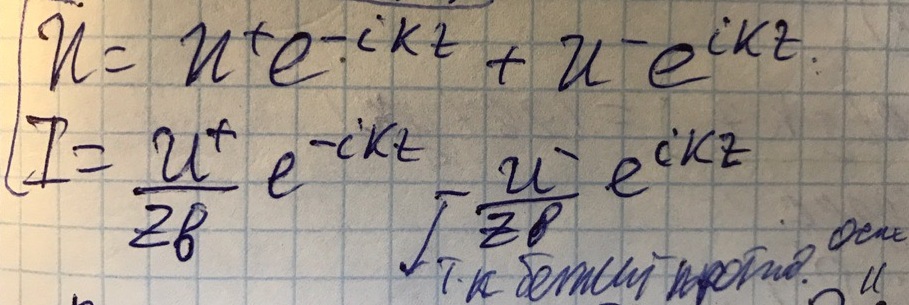 U = U⁺e^{-ikz} + U⁻e^{ikz}.
I = U⁺/Zв e^{-ikz} - U⁻/Zв e^{ikz}
Т.к бежит против.